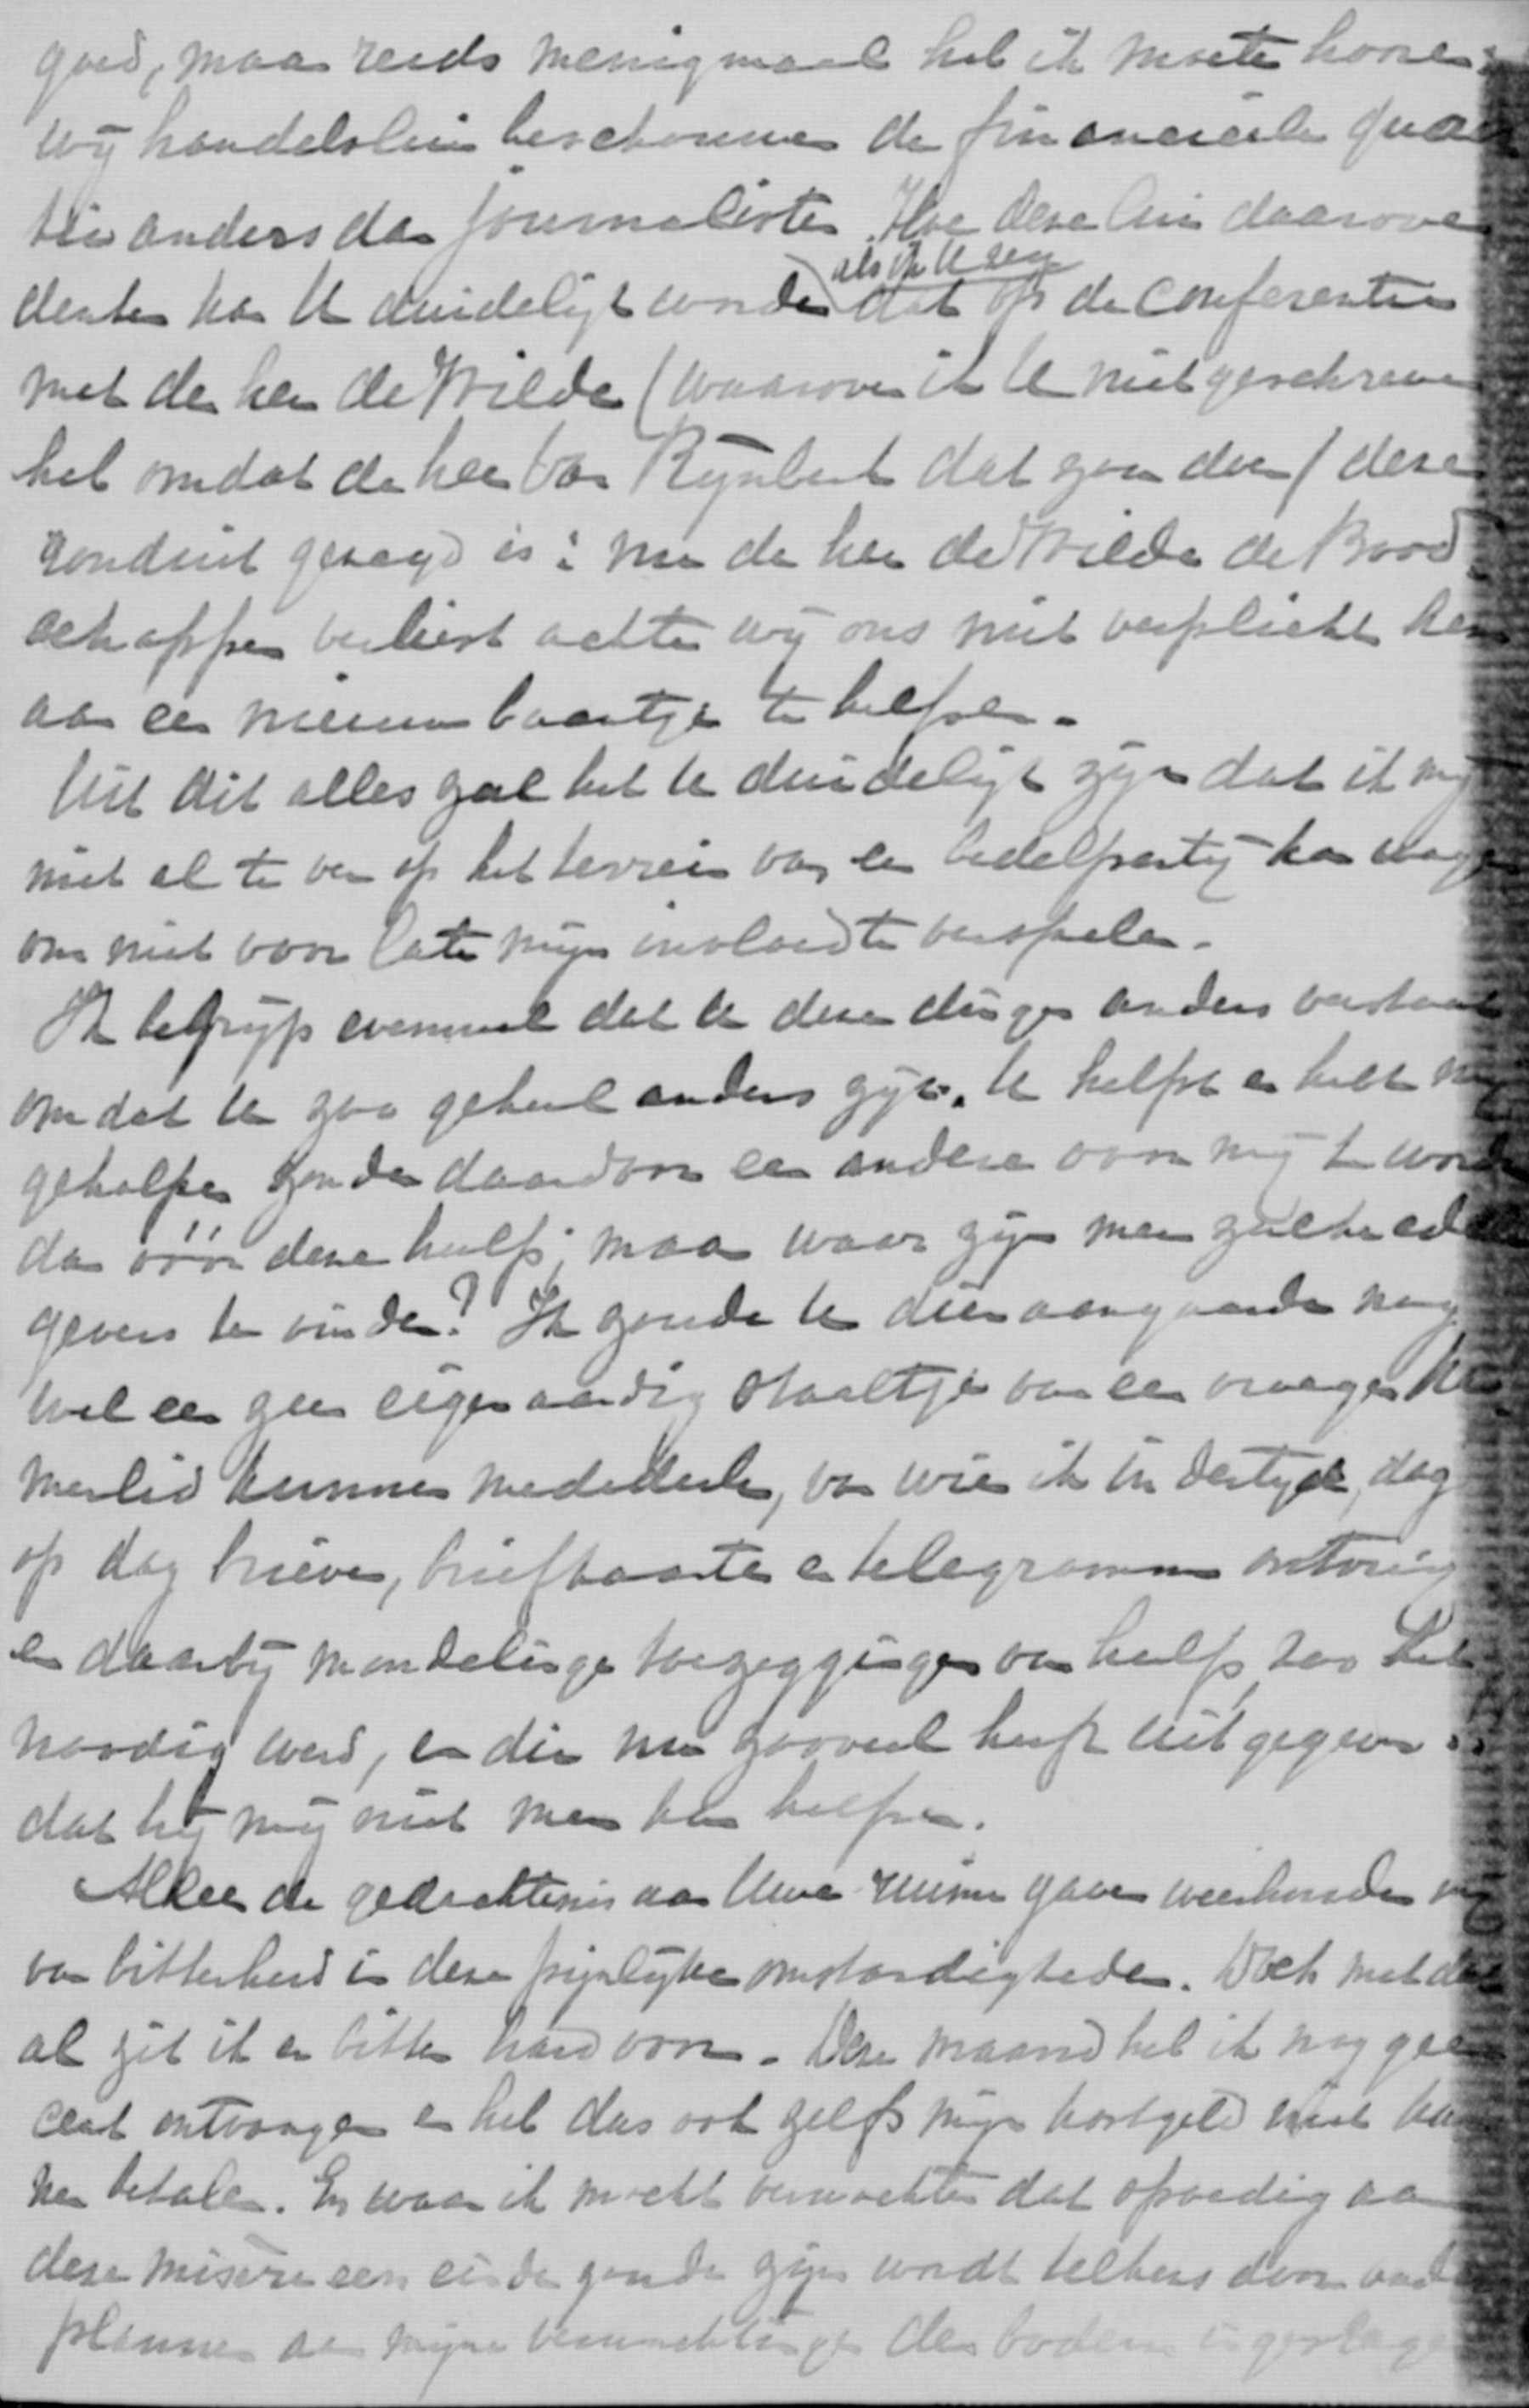 goed, maar reeds menigmaal heb ik moeten hooren:
wij handelslui beschouwen de financieele quaes
tie anders dan journalisten. Hoe deze lui daarover
denken kan U duidelijk worden als ik U zeg dat op de conferentie
met den heer de Wilde (waarover ik U niet geschreven
heb omdat de heer van Rijnberk dat zou doen) dezen
ronduit gezegd is: nu de heer de Wilde de Bood
schapper verliest achten wij ons niet verplicht hem
aan een nieuw baantje te helpen.
Uit dit alles zal het U duidelijk zijn dat ik mij
niet al te ver op het terrein van een bedelpartij kan wagen
om niet voor later mijn invloed te verspelen.
Ik begrijp evenwel dat U deze dingen anders verstaat
omdat U zoo geheel anders zijt. U helpt en hebt mij
geholpen zonder daardoor een andere voor mij te worden
dan vóór deze hulp; maar waar zijn meer zulke edele
gevers te vinden? Ik zoude U dienaangaande nog
wel een zeer eigenaardig staaltje van een vroeger Ka
merlid kunnen mededeelen, van wien ik in der tijd, dag
op dag brieven, briefkaarten en telegrammen ontving
en daarbij mondelinge toezeggingen van hulp zoo het
noodig werd, en die nu zooveel heeft uitgegeven ..
dat hij mij niet meer kan helpen.
Alleen de gedachtenis aan Uwe ruime gaven weerhouden mij
van bitterheid in deze pijnlijke omstandigheden. Doch met dat
al zit ik er bitter hard voor. Deze maand heb ik nog geen
cent ontvangen en heb dus ook zelfs mijn kostgeld niet kun
nen betalen. En waar ik mocht verwachten dat spoedig aan
deze misère een einde zoude zijn wordt telkens door
plannen aan mijne verwachtingen den bodem ingeslagen